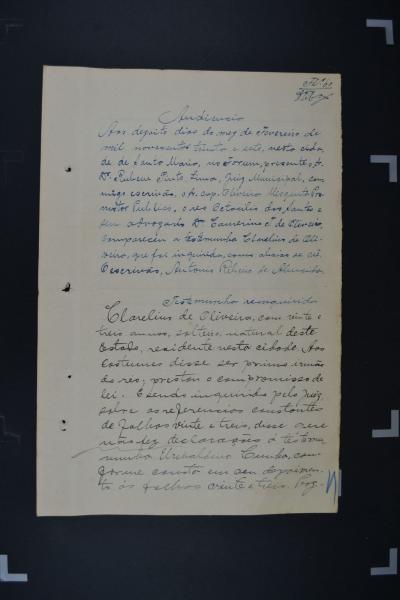 Audiencia
Aos dezoito dias do mez de Fevereiro de
mil novecentos trinta e sete, nesta cida
de de Santo Maria, no Forum, presente o Sr.
Dr. Rubem Pinto Lima, Juiz Municipal, com
migo escrivão, o Sr. cap. Oliverio Mesquita Pro
motor Publico, o réo Octacilio dos Santos e
seu advogado Dr. Camerino T. de Oliveira,
compareceu a testemunha Clarelius de Oli-
veira, que foi inquirida, como abaixo se vê.
O escrivão, Antonio Ribeiro de Almeida
Testemunha reinquirida
Clarelius de Oliveira, com vinte e
treis annos, solteiro, natural deste
Estado, residente nesta cidade. Aos
costumes disse ser primo irmão
do réo, prestou o compromisso de
lei. E sendo inquirido pelo Juiz
sobre as referencias constantes
de folhas vinte e treis, disse
não fez declarações á testem
munha Cunha, con-
forme consta em seu depoimen-
to ás folhas vinte e treis. Prog-